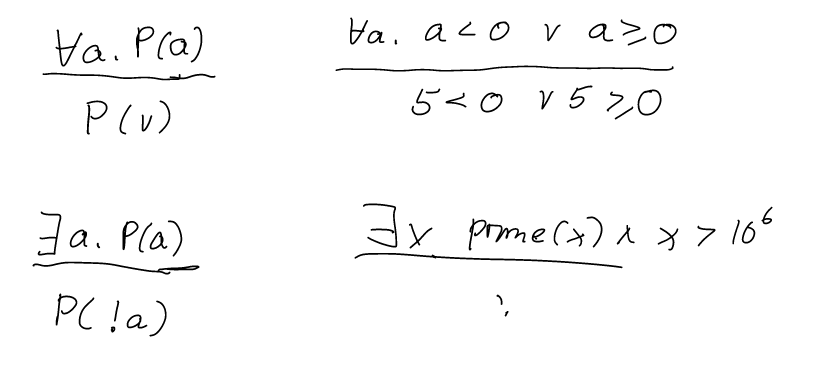 ∀a. P(a)
P(v)
∀a. a<0 ∨ a≥0
5<0 ∨ 5≥0
∃a. P(a)
P(!a)
∃x prime(x) ∧ x > 10⁶